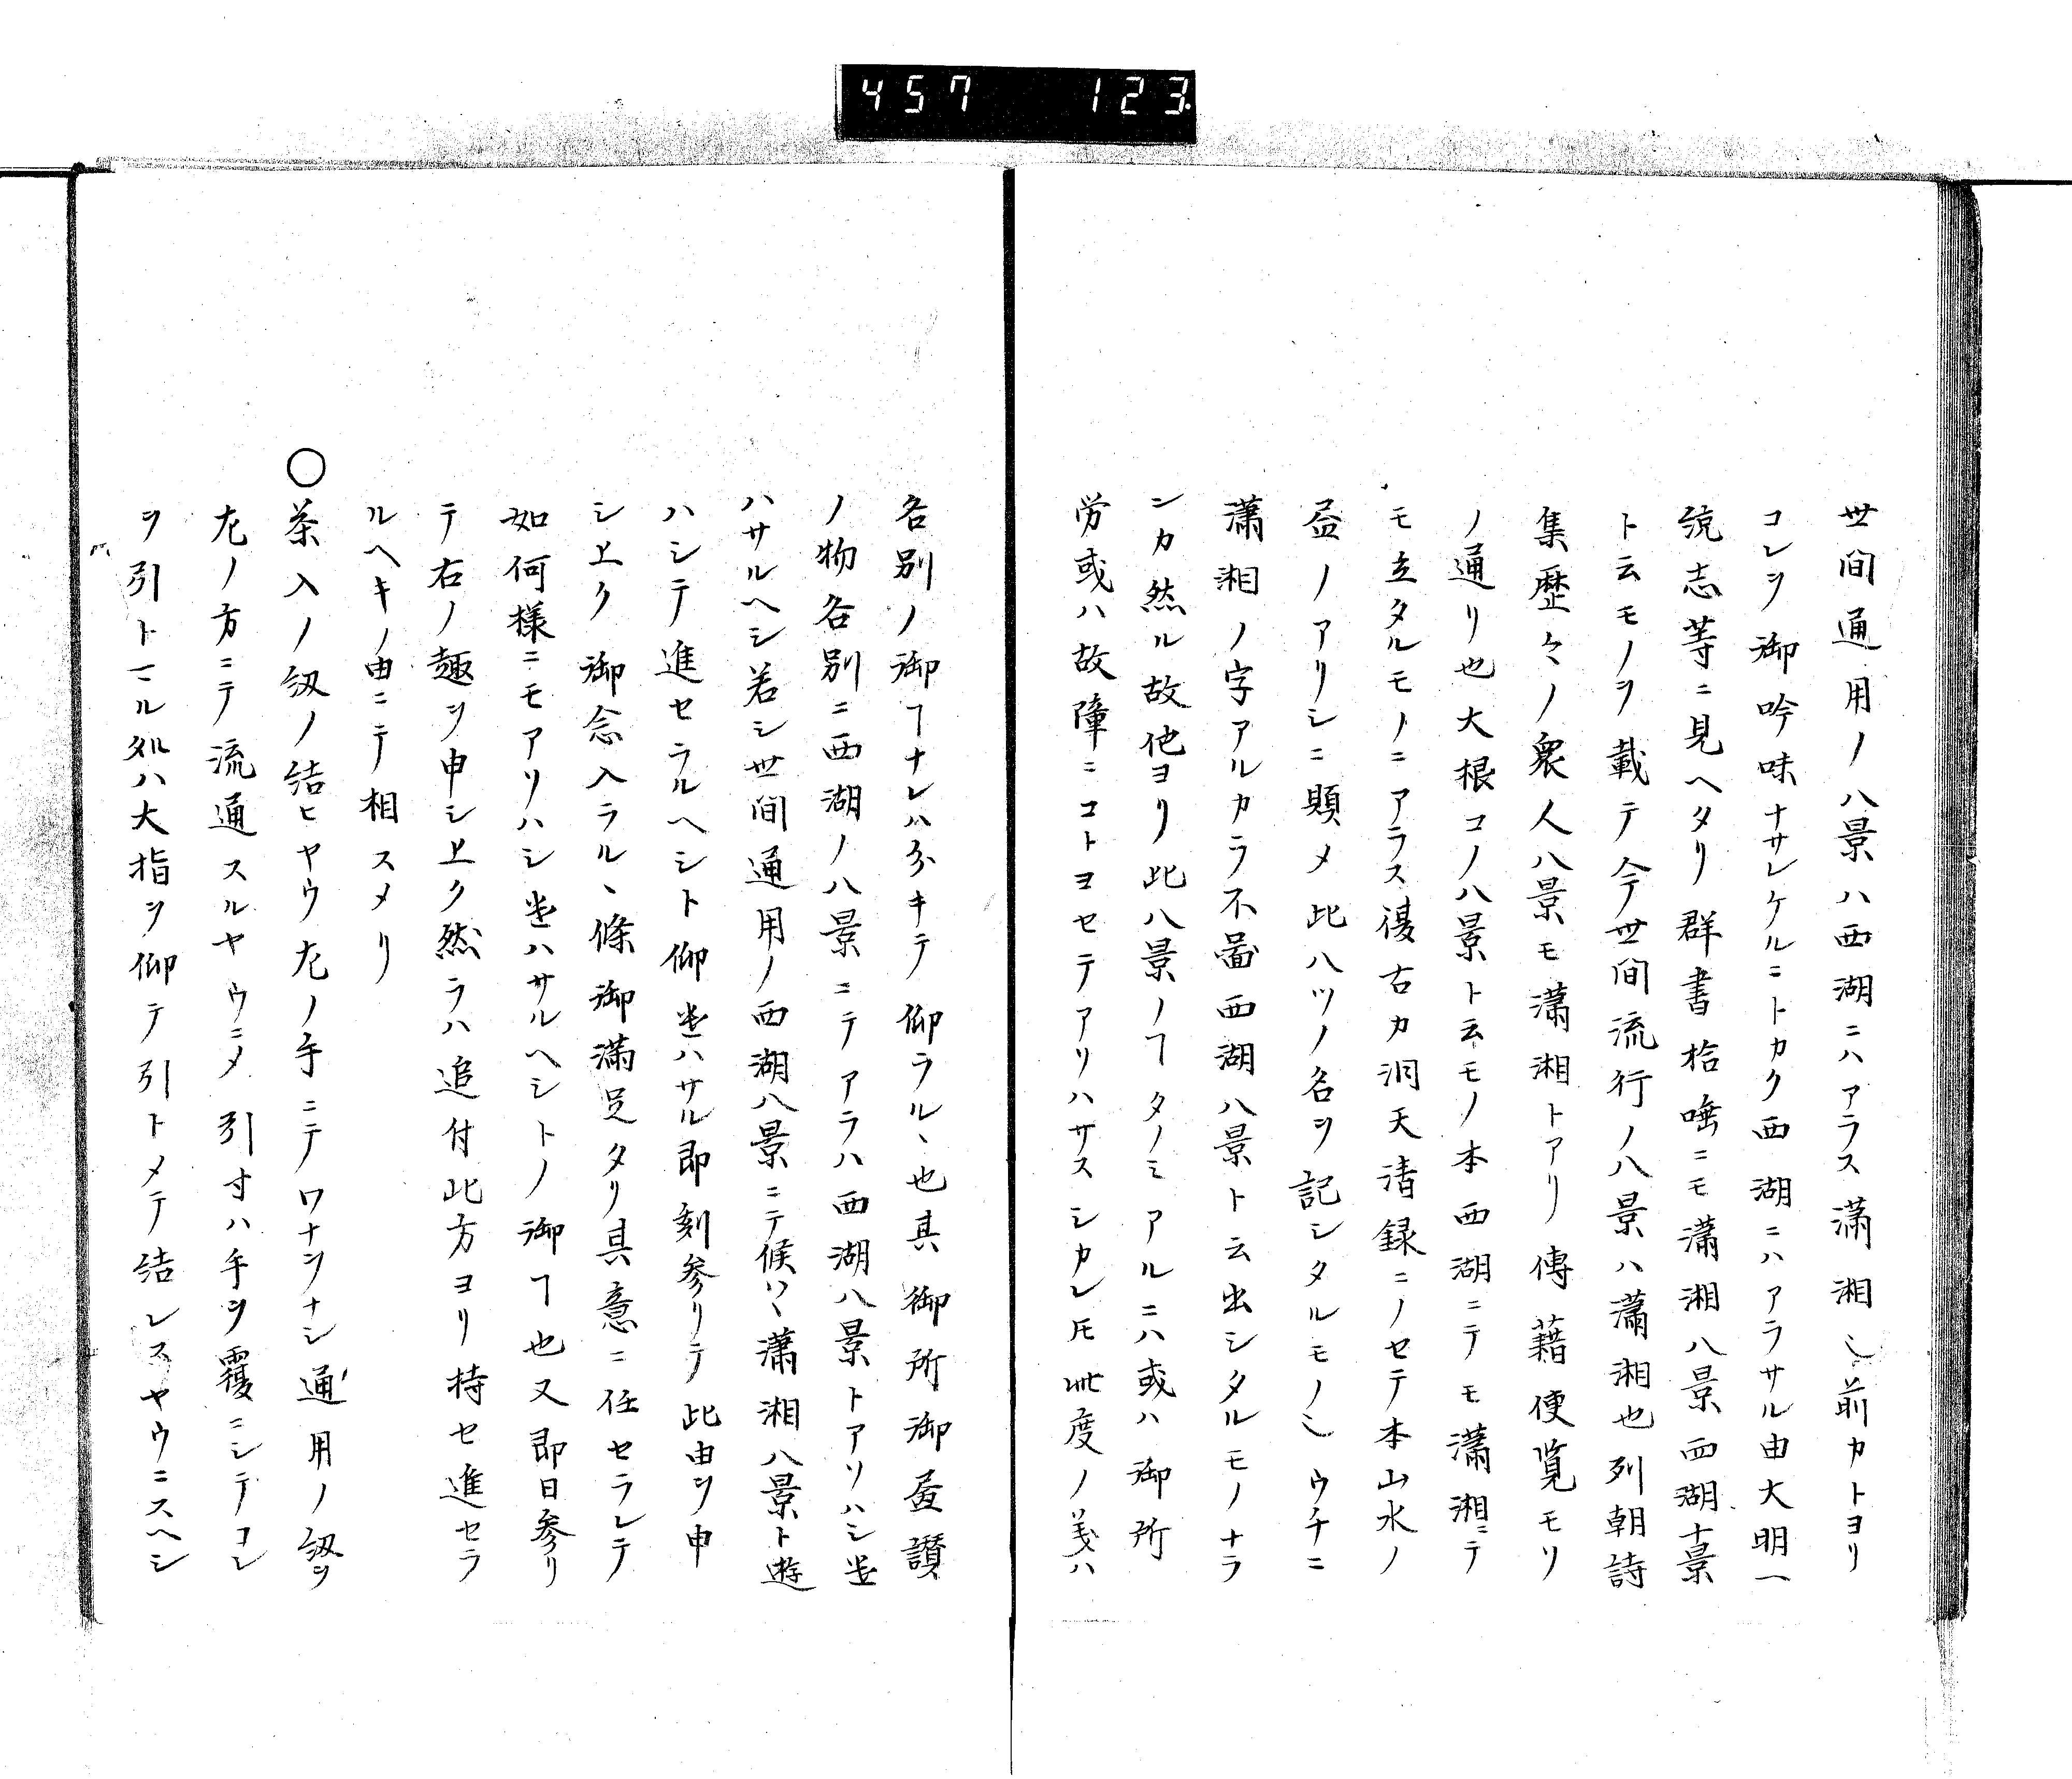 457 123.
世間通用ノ八景ハ西湖ニハアラス瀟湘也前カトヨリ
コレヲ御吟味ナサレケルニトカク西湖ニハアラサル由大明一
統志等ニ見ヘタリ群書拾唾ニモ瀟湘八景西湖十景
ト云モノヲ載テ今世間流行ノ八景ハ瀟湘也列朝詩
集歴々ノ衆人八景モ瀟湘トアリ傳藉便覧モソ
ノ通リ也大根コノ八景ト云モノ本西湖ニテモ瀟湘ニテ
モ立タルモノニアラス復古カ洞天清録ニノセテ本山水ノ
益ノアリシニ題メ此八ツノ名ヲ記シタルモノ也ウチニ
瀟湘ノ字アルカラ不啚西湖八景ト云出シタルモノナラ
ンカ然ル故他ヨリ此八景ノヿタノミアルニハ或ハ御所
労或ハ故障ニコトヨセテアソハサスシカレ𪜈此度ノ義ハ
各別ノ御ヿナレハ分キテ仰ラル丶也其御所御畫讃
ノ物各別ニ西湖ノ八景ニテアラハ西湖八景トアソハシ進
ハサルヘシ若シ世間通用ノ西湖八景ニテ候ハヽ瀟湘八景ト遊
ハシテ進セラルヘシト仰進ハサル即刻参リテ此由ヲ申
シ上ク御念入ラル丶條御満足タリ其意ニ任セラレテ
如何様ニモアソハシ進ハサルヘシトノ御ヿ也又即日参リ
テ右ノ趣ヲ申シ上ク然ラハ追付此方ヨリ持セ進セラ
ルヘキノ由ニテ相スメリ
〇茶入ノ紐ノ結ヒヤウ左ノ手ニテワナヲナシ通用ノ紐ヲ
左ノ方ニテ流通スルヤウニメ引寸ハ手ヲ覆ニシテコレ
ヲ引トマル処ハ大指ヲ仰テ引トメテ結レスヤウニスヘシ